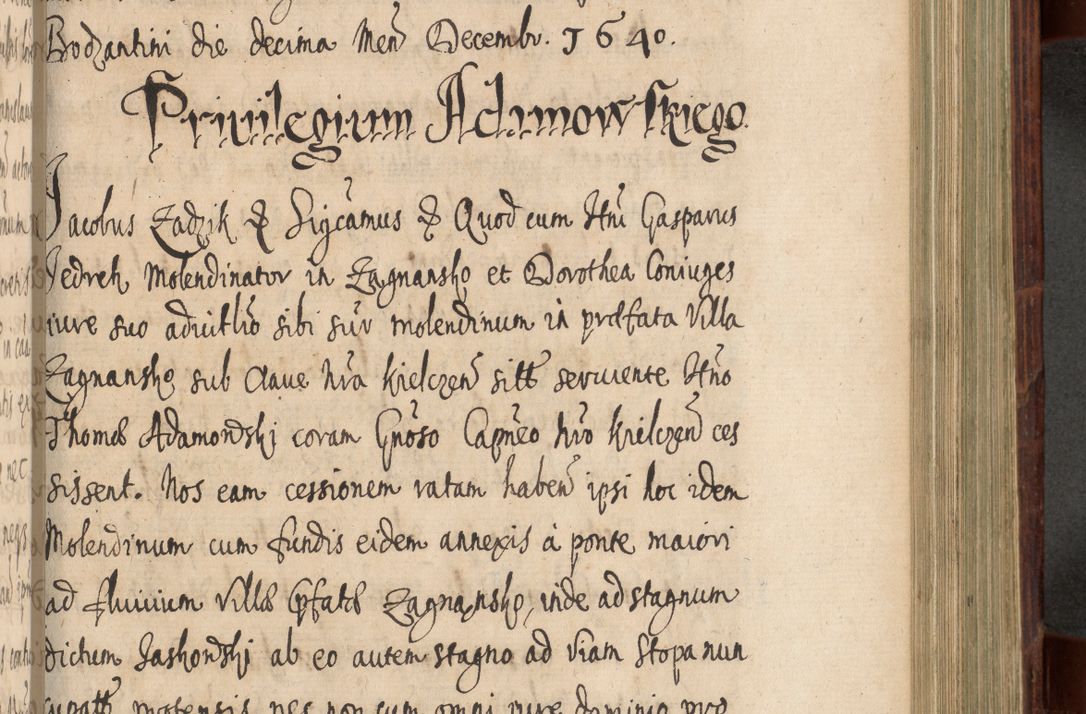 Bodzantini die decima Men Decembr. 1640.
Privilegium Adamowskiego.
Jacobus Zadzik & Sigcamus & Quod cum Hni Gasparus
Jedreh Molendinator in Zagnansko et Dorothea Coniuges
iure suo advitlio sibi sur molendinum in præfata Villa
Zagnansko sub Clave nra Kielczen sitt serviente Hno
Thomæ Adamowski coram Gnoso Capneo nro Kielczen ces
sissent. Nos eam cessionem ratam haben ipsi hoc idem
Molendinum cum fundis eidem annexis à ponte maiori
ad fluvium Villæ pfatæ Zagnansko, inde ad stagnum
dictum Jaskowski ab eo autem stagno ad viam Stopa nun
cupatt molensis nec non cum omni iure dominio pro